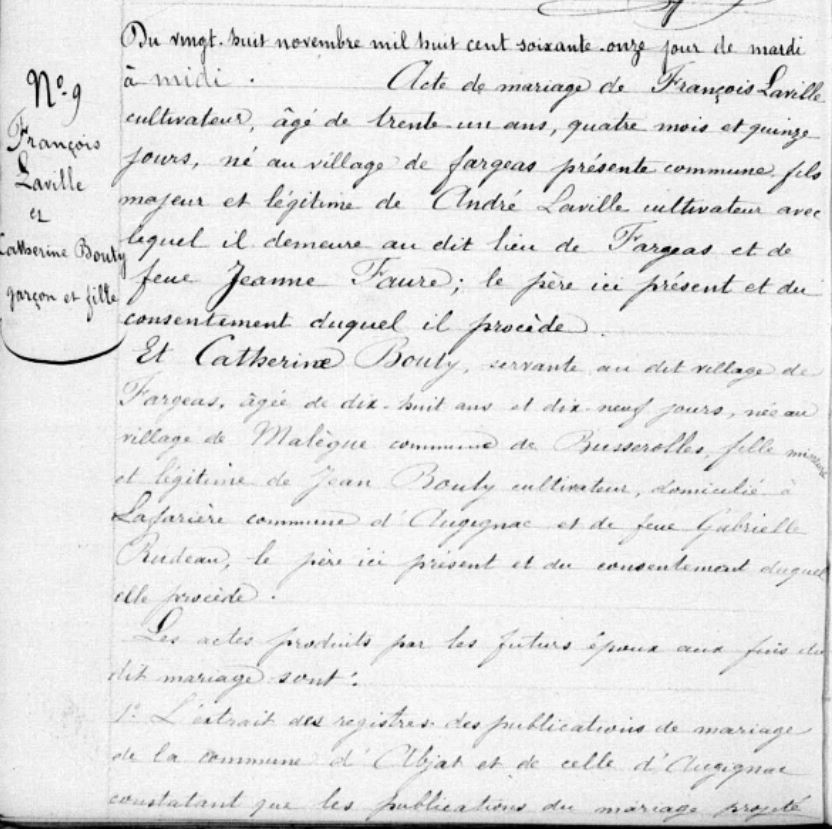 Nº 9
François
Laville
et
Catherine Bouty
garçon et fille
Du vingt-huit novembre mil huit cent soixante-onze jour de mardi
à midi. Acte de mariage de François Laville
cultivateur, âgé de trente un ans, quatre mois et quinze
jours, né au village de fargeas présente commune, fils
majeur et légitime de André Laville cultivateur avec
lequel il demeure au dit lieu de Fargeas et de
feue Jeanne Faure; le père ici présent et du
consentement duquel il procède.
Et Catherine Bouty, servante au dit village de
Fargeas, âgée de dix-huit ans et dix-neuf jours, née au
village de Malèque commune de Busserolles, fille mineure
et légitime de Jean Bouty cultivateur, domicilié à
Lafarière commune d'Augignac et de feue Gabrielle
Rudeau, le père ici présent et du consentement duquel
elle procède.
Les actes produits par les futurs époux aux fins du
dit mariage sont:
1º L'extrait des registres des publications de mariage
de la commune d'Abjat et de celle d'Augignac
constatant que les publications du mariage projeté